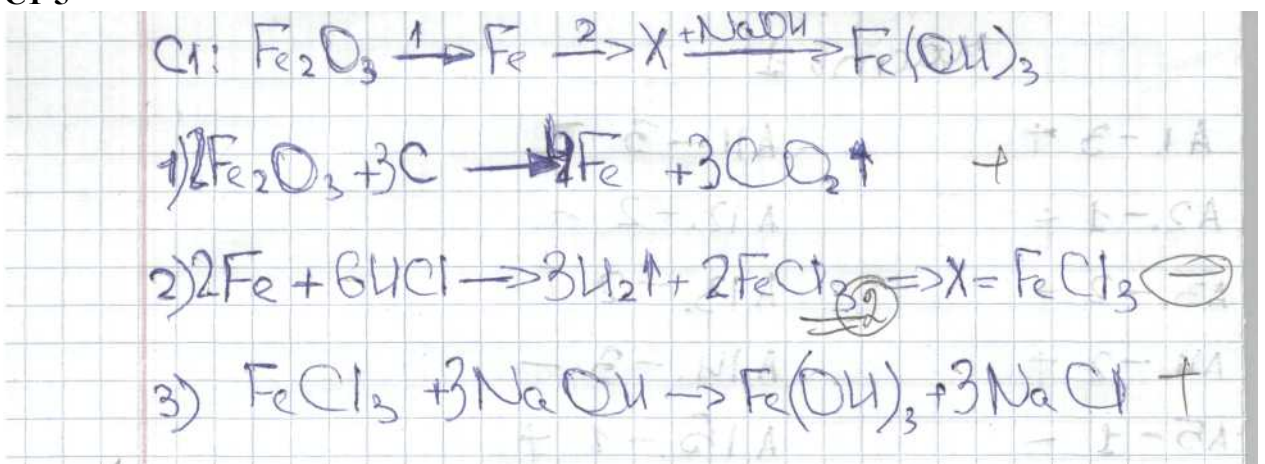 C1: Fe₂O₃ 1→ Fe 2→ X +NaOH→ Fe(OH)₃
1) 2Fe₂O₃ + 3C → 4Fe + 3CO₂↑ +
2) 2Fe + 6HCl → 3H₂↑ + 2FeCl₃ 2 => X = FeCl₃ −
3) FeCl₃ + 3NaOH → Fe(OH)₃ + 3NaCl +